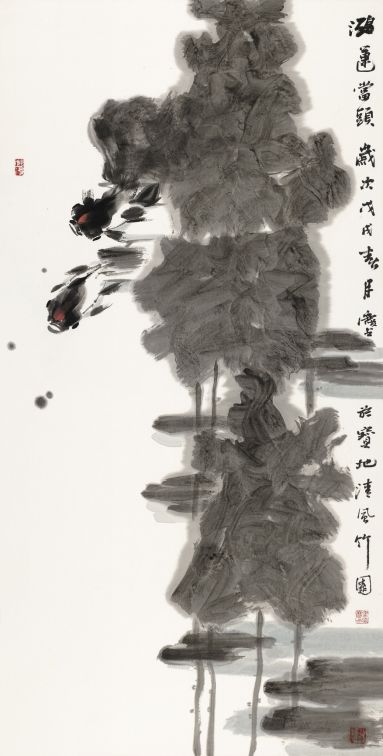 鴻運當頭 歲次戊戌春月
於寶地清風竹園